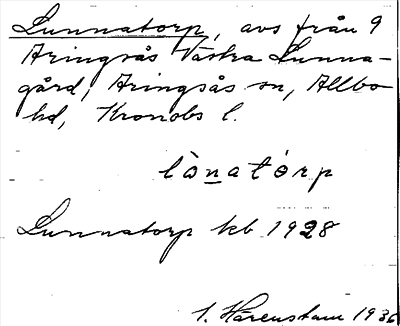 Lunnatorp, avs från 9
Aringsås Västra Lunna-
gård, Aringsås sn, Allbo
hd, Kronobs l.
lònatórp
Lunnatorp kb 1928
1. Härenstam 1936